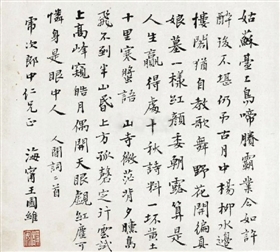 姑蘇臺上烏啼曙賸霸業今如許
醉後不堪仍弔古月中楊柳水邊
樓閣猶自教歌舞野花開遍真
娘墓一樣紅顏委朝露算是
人生贏得處千秋詩料一抔黃土
十里寒螿語 山寺微茫背夕曛鳥
飛不到半山昏上方孤磬定行雲試
上高峰窺皓月偶開天眼覷紅塵可
憐身是眼中人 人間詞二首
次郎中仁兄正
海甯王國維